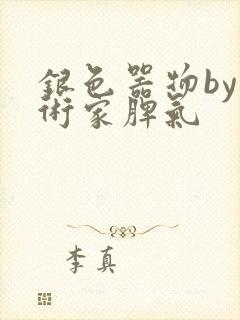 銀色器物by
術家脾氣
李真